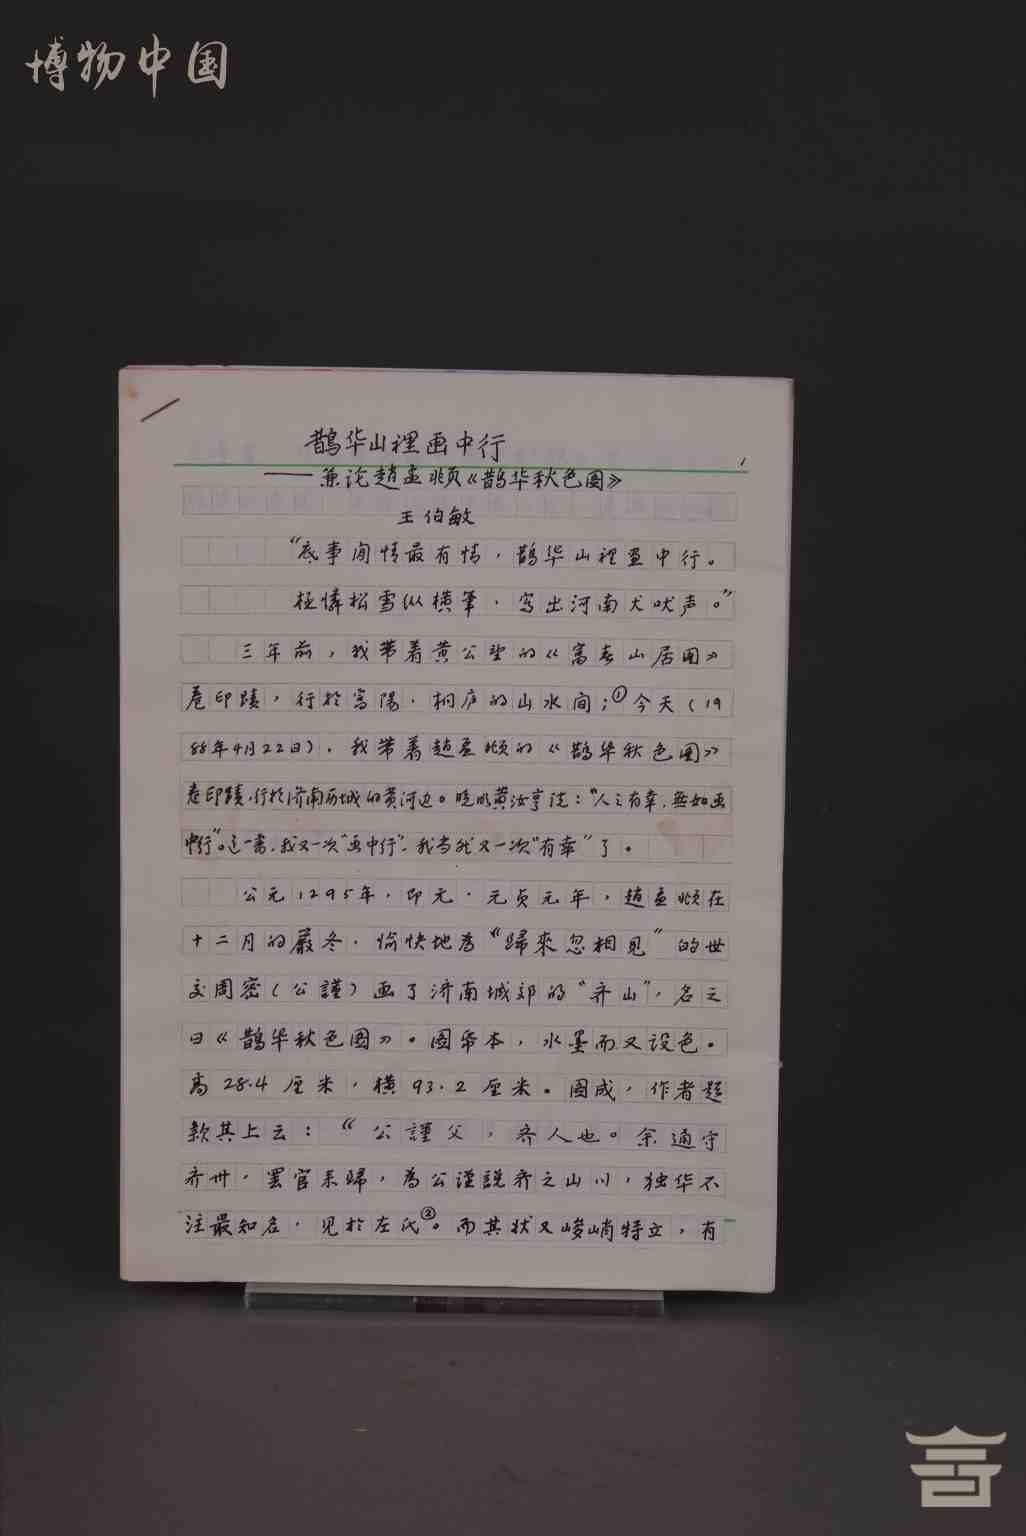 博物中国
鹊华山裡画中行
1
——兼论趙孟頫《鹊华秋色图》
王伯敏
“底事闲情最有情，鹊华山裡画中行。
极憐松雪纵横筆，写出河南犬吠声。”
三年前，我带着黄公望的《富春山居图》
卷印蹟，行於富陽、桐庐的山水间；①今天（19
88年4月22日），我带着趙孟頫的《鹊华秋色图》
卷印蹟，行於济南历城的黄河边。晚明黄汝亨说：“人之有幸，無如画
中行”。这一需，我又一次“画中行”，我当然又一次“有幸”了。
公元1295年，即元·元贞元年，趙孟頫在
十二月的嚴冬，愉快地為“歸來忽相见”的世
交周密（公謹）画了济南城郊的“齐山”，名之
曰《鹊华秋色图》。图纸本，水墨而又设色。
高28.4厘米，横93.2厘米。图成，作者题
款其上云：“公謹父，齐人也。余通守
齐卅，罢官来歸，為公谨説齐之山川，独华不
注最知名，见於左氏②。而其状又峻峭特立，有